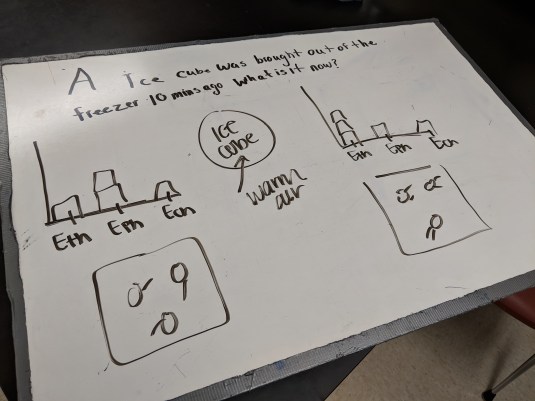 A Ice cube was brought out of the
freezer 10 mins ago What is it now?
ICE
cube
warm
air
Eth Eph Ech
Eth Eph Ech